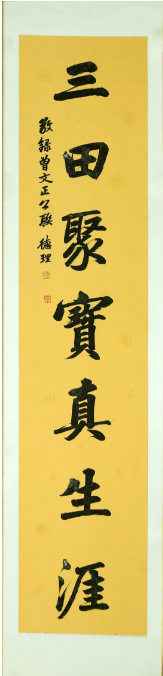 三田聚寶真生涯
敬錄曾文正公聯 德理